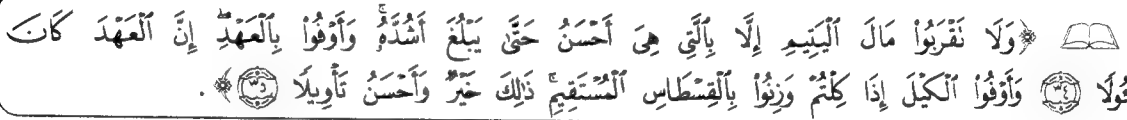 ﴿وَلَا تَقْرَبُوا۟ مَالَ ٱلْيَتِيمِ إِلَّا بِٱلَّتِى هِىَ أَحْسَنُ حَتَّىٰ يَبْلُغَ أَشُدَّهُۥ ۚ وَأَوْفُوا۟ بِٱلْعَهْدِ ۖ إِنَّ ٱلْعَهْدَ كَانَ
ـُٔولًا ﴿٣٤﴾ وَأَوْفُوا۟ ٱلْكَيْلَ إِذَا كِلْتُمْ وَزِنُوا۟ بِٱلْقِسْطَاسِ ٱلْمُسْتَقِيمِ ۚ ذَٰلِكَ خَيْرٌ وَأَحْسَنُ تَأْوِيلًا ﴿٣٥﴾﴾.